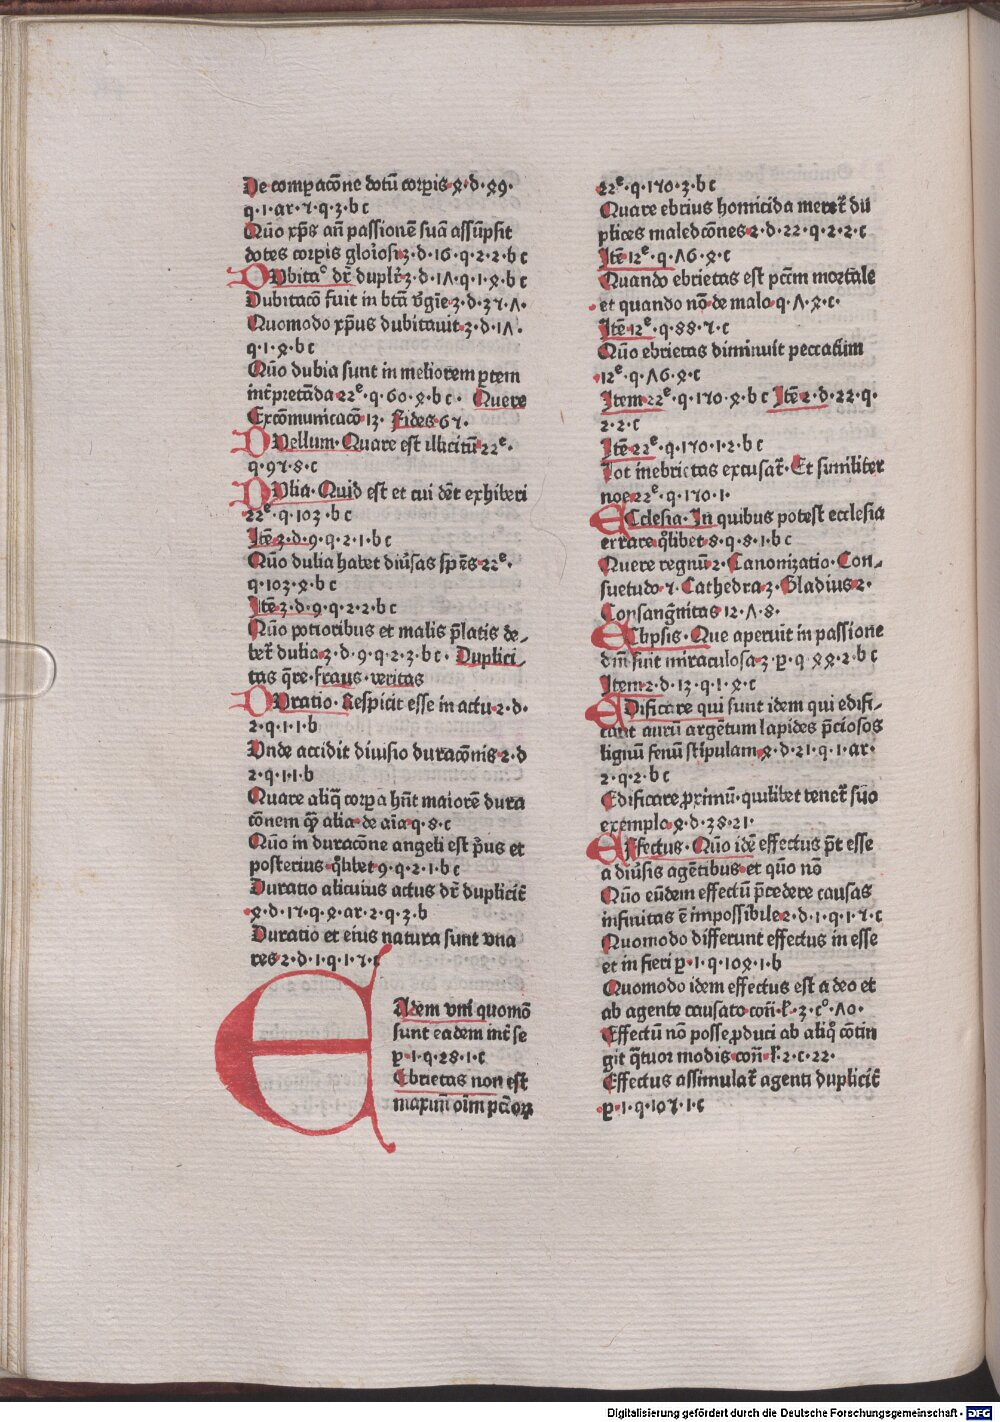 De compacōne dotū corpis 4·d·49·
q·1·ar·7·q·3·b c
Qūo xp̄s an̄ passionē suā assūpsit
dotes corpis glo͛iosi 3·d·16·q·2·2·b c
DVbitaᵒ dr̄ duplr̄ 3·d·17·q·1·4·b c
Dubitacō fuit in btā v̄gīe 3·d·37·Λ·
Quomodo xp̄us dubitauit 3·d·1Λ·
q·1·4·b c
Qūo dubia sunt in meliorem ꝑtem
int̄pretāda 22ᵉ·q·60·4·b c· Quere
Excōmunicacō 13· Fides 67·
DVellum·Quare est illicitū 22ᵉ·
q·97·8·c
DVlia·Quid est et cui det̄ exhiberi
22ᵉ·q·103·b c
Itē 3·d·9·q·2·1·b c
Qūo dulia habet diūsas sp̄ēs 22ᵉ·
q·103·4·b c
Itē 3·d·9·q·2·2·b c
Qūo potioribus et malis p̄latis de-
bet̄ dulia 3·d·9·q·2·3·b c· Duplici-
tas q̄re·fraus·veritas
DVratio·Respicit esse in actu 2·d·
2·q·1·1·b
Vnde accidit diuisio duracōnis 2·d
2·q·1·1·b
Quare aliq̄ corpa hn̄t maiorē dura
cōnem q̄ȝ alia·de aīa q·8·c
Qūo in duracōne angeli est p̄us et
posterius·q̊libet 9·q·2·1·b c
Duratio alicuius actus dr̄ duplicit̄
4·d·17·q·4·ar·2·q·3·b
Duratio et eius natura sunt vna
res 2·d·1·q·1·7·c
EAdem vni quomō
sunt eadem int̄ se
ꝑ·1·q·28·1·c
Ebrietas non est
maximū oīm pctōꝝ
22ᵉ·q·170·3·b c
Quare ebrius homicida meret̄ du
plices maledcōnes 2·d·22·q·2·2·c
Itē 12ᵉ·q·Λ6·4·c
Quando ebrietas est pctm mortale
et quando nō·de malo·q·Λ·4·c·
Itē 12ᵉ·q·88·7·c
Qūo ebrietas diminuit peccatum
12ᵉ·q·Λ6·4·c
Item 22ᵉ·q·170·4·b c Itē 2·d·22·q·
2·2·c
Itē 22ᵉ·q·170·1·2·b c
Lot inebrietas excusat̄·Et similiter
noe 22ᵉ·q·170·1·
ECclesia·In quibus potest ecclesia
errare q̊libet·8·q·8·1·b c
Quere regnū 2·Canonizatio·Con-
suetudo 7·Cathedra 3·Gladius 2·
Consang̈nitas 12·Λ·8·
EClipsis·Que aperuit in passione
dn̄i fuit miraculosa 3·ꝑ·q 44·2·b c
Item 2·d·13·q·1·4·c
EDificare qui sunt idem qui edifi-
cant aurū argētum lapides p̄ciosos
lignū fenū stipulam 4·d·21·q·1·ar·
2·q·2·b c
Edificare ꝓximū·quilibet tenet̄ suo
exemplo 4·d·38·21·
EFfectus·Qūo idē effectus pn̄t esse
a diūsis agētibus et qūo nō
Qūo eūdem effectū p̄cedere causas
infinitas ē impossibile 2·d·1·q·1·7·c
Quomodo differunt effectus in esse
et in fieri ꝑ·1·q·104·1·b
Quomodo idem effectus est a deo et
ab agente causato con̄·l·3·cᵒ·Λ0·
Effectū nō posse ꝓduci ab aliq̊ cōtin
git q̄tuor modis con̄·l·2·c·22·
Effectus assimulat̄ agenti duplicit̄
ꝑ·1·q·107·1·c
Digitalisierung gefördert durch die Deutsche Forschungsgemeinschaft - DFG